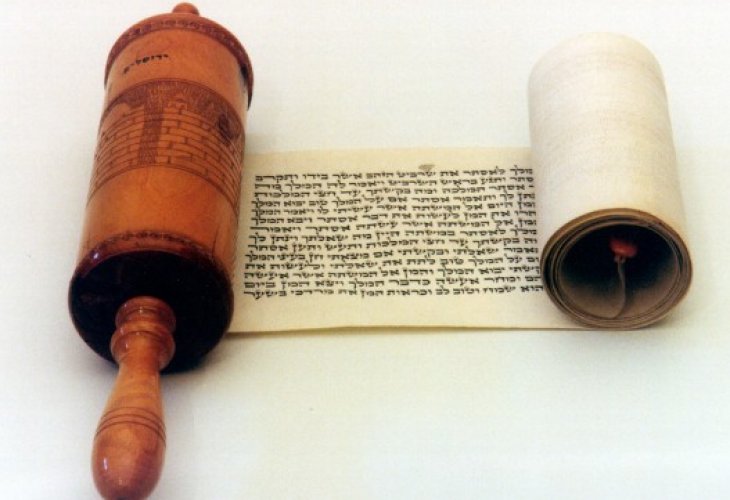 ירושלים
מלך לאסתר את שרביט הזהב אשר בידו ותקרב
סתר ותגע בראש השרביט ויאמר לה המלך מה
אסתר המלכה ומה בקשתך עד חצי המלכות
תן לך ותאמר אסתר אם על המלך טוב יבוא המלך
מן היום אל המשתה אשר עשיתי לו ויאמר המלך
הרו את המן לעשות את דבר אסתר ויבא המלך
אל המשתה אשר עשתה אסתר ויאמר
לאסתר במשתה היין מה שאלתך וינתן לך
ה בקשתך עד חצי המלכות ותעש ותען אסתר
תאמר שאלתי ובקשתי אם מצאתי חן בעיני המלך
ם על המלך טוב לתת את שאלתי ולעשות את
קשתי יבוא המלך והמן אל המשתה אשר אעשה
הם ומחר אעשה כדבר המלך ויצא המן ביום
הוא שמח וטוב לב וכראות המן את מרדכי בשער